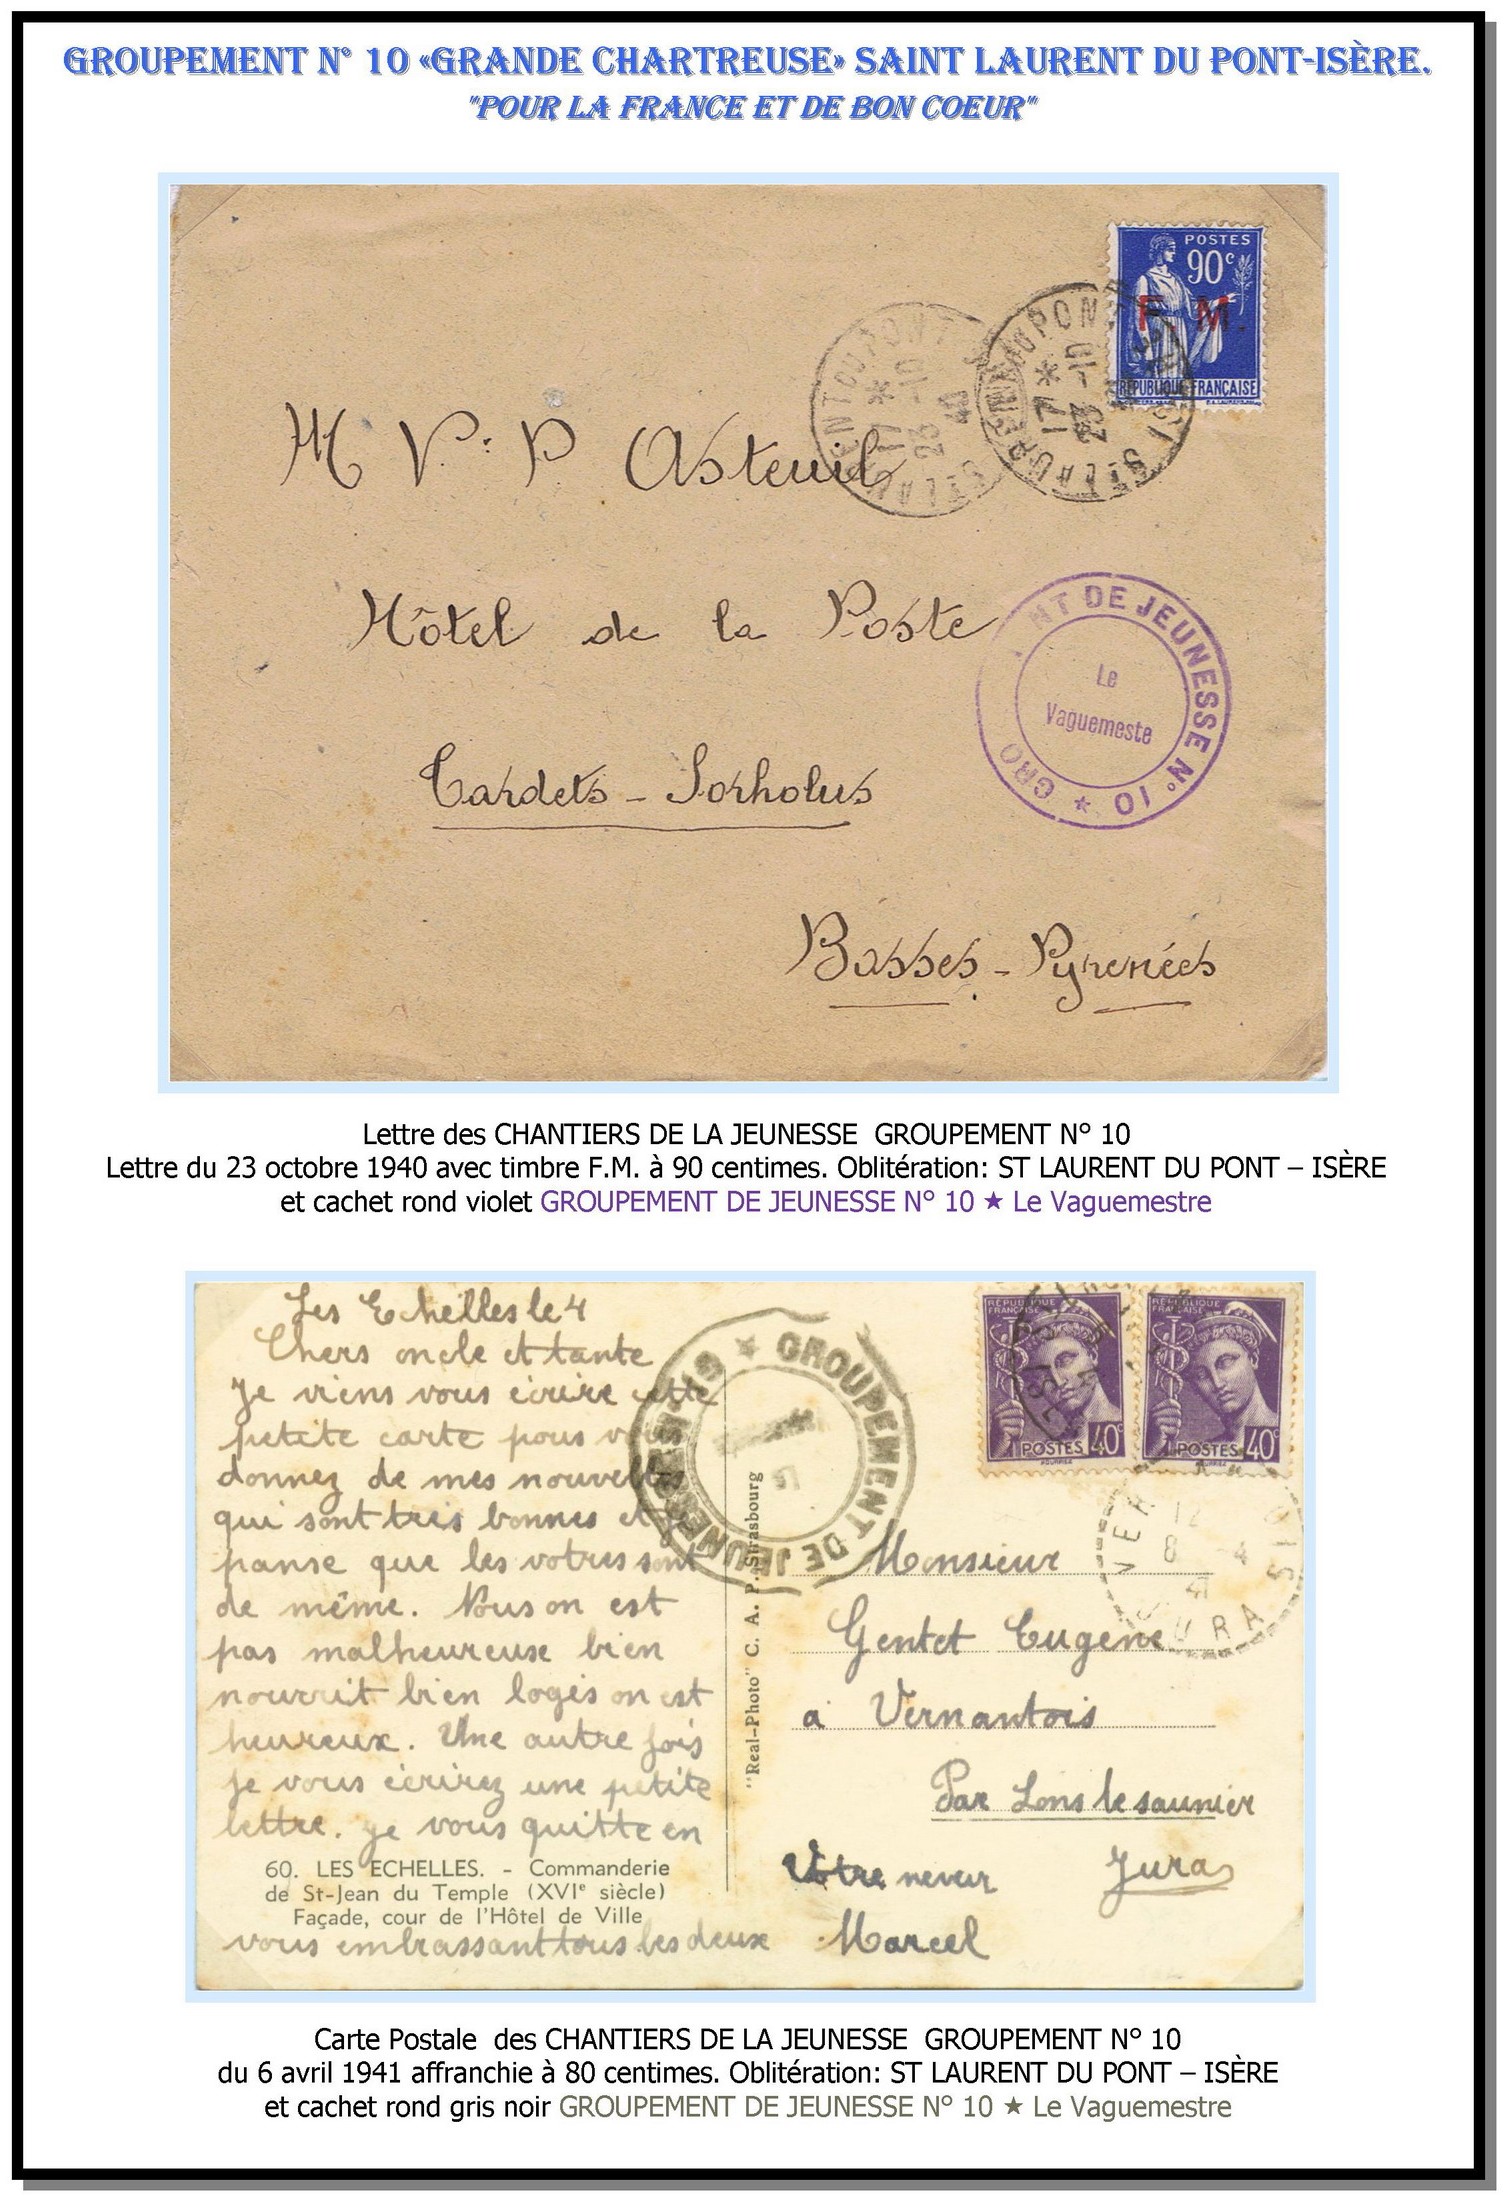 GROUPEMENT N° 10 «GRANDE CHARTREUSE» SAINT LAURENT DU PONT-ISÈRE.
"POUR LA FRANCE ET DE BON COEUR"
POSTES
90c
F. M.
RÉPUBLIQUE FRANÇAISE
17 * 23 -10 40
ST LAURENT DU PONT
17 * 23 -10
ST LAURENT DU PONT
M V. P Asteuil
Hôtel de la Poste
GRO NT DE JEUNESSE N° 10 ★
Le
Vaguemeste
Tardets - Sorholus
Basses - Pyrenées
Lettre des CHANTIERS DE LA JEUNESSE GROUPEMENT N° 10
Lettre du 23 octobre 1940 avec timbre F.M. à 90 centimes. Oblitération: ST LAURENT DU PONT – ISÈRE
et cachet rond violet GROUPEMENT DE JEUNESSE N° 10 ★ Le Vaguemestre
Les Echelles le 4
Chers oncle et tante
Je viens vous écrire cette
petite carte pous vous
donnez de mes nouvelles
qui sont très bonnes et je
panse que les votres sont
de même. Nous on est
pas malheureuse bien
nourrit bien logés on est
heureux. Une autre fois
je vous écrirez une petite
lettre. je vous quitte en
60. LES ECHELLES. - Commanderie
de St-Jean du Temple (XVIe siècle)
Façade, cour de l'Hôtel de Ville
vous embrassant tous les deux
★ GROUPEMENT DE JEUNESSE N. 10
"Real-Photo" C. A. P. Strasbourg
RÉPUBLIQUE FRANÇAISE
POSTES 40c
RÉPUBLIQUE FRANÇAISE
POSTES 40c
12
8 -4
41
JURA
Monsieur
Gentet Eugène
à Vernantois
Par Lons le saunier
Jura
Votre neveux
Marcel
Carte Postale des CHANTIERS DE LA JEUNESSE GROUPEMENT N° 10
du 6 avril 1941 affranchie à 80 centimes. Oblitération: ST LAURENT DU PONT – ISÈRE
et cachet rond gris noir GROUPEMENT DE JEUNESSE N° 10 ★ Le Vaguemestre